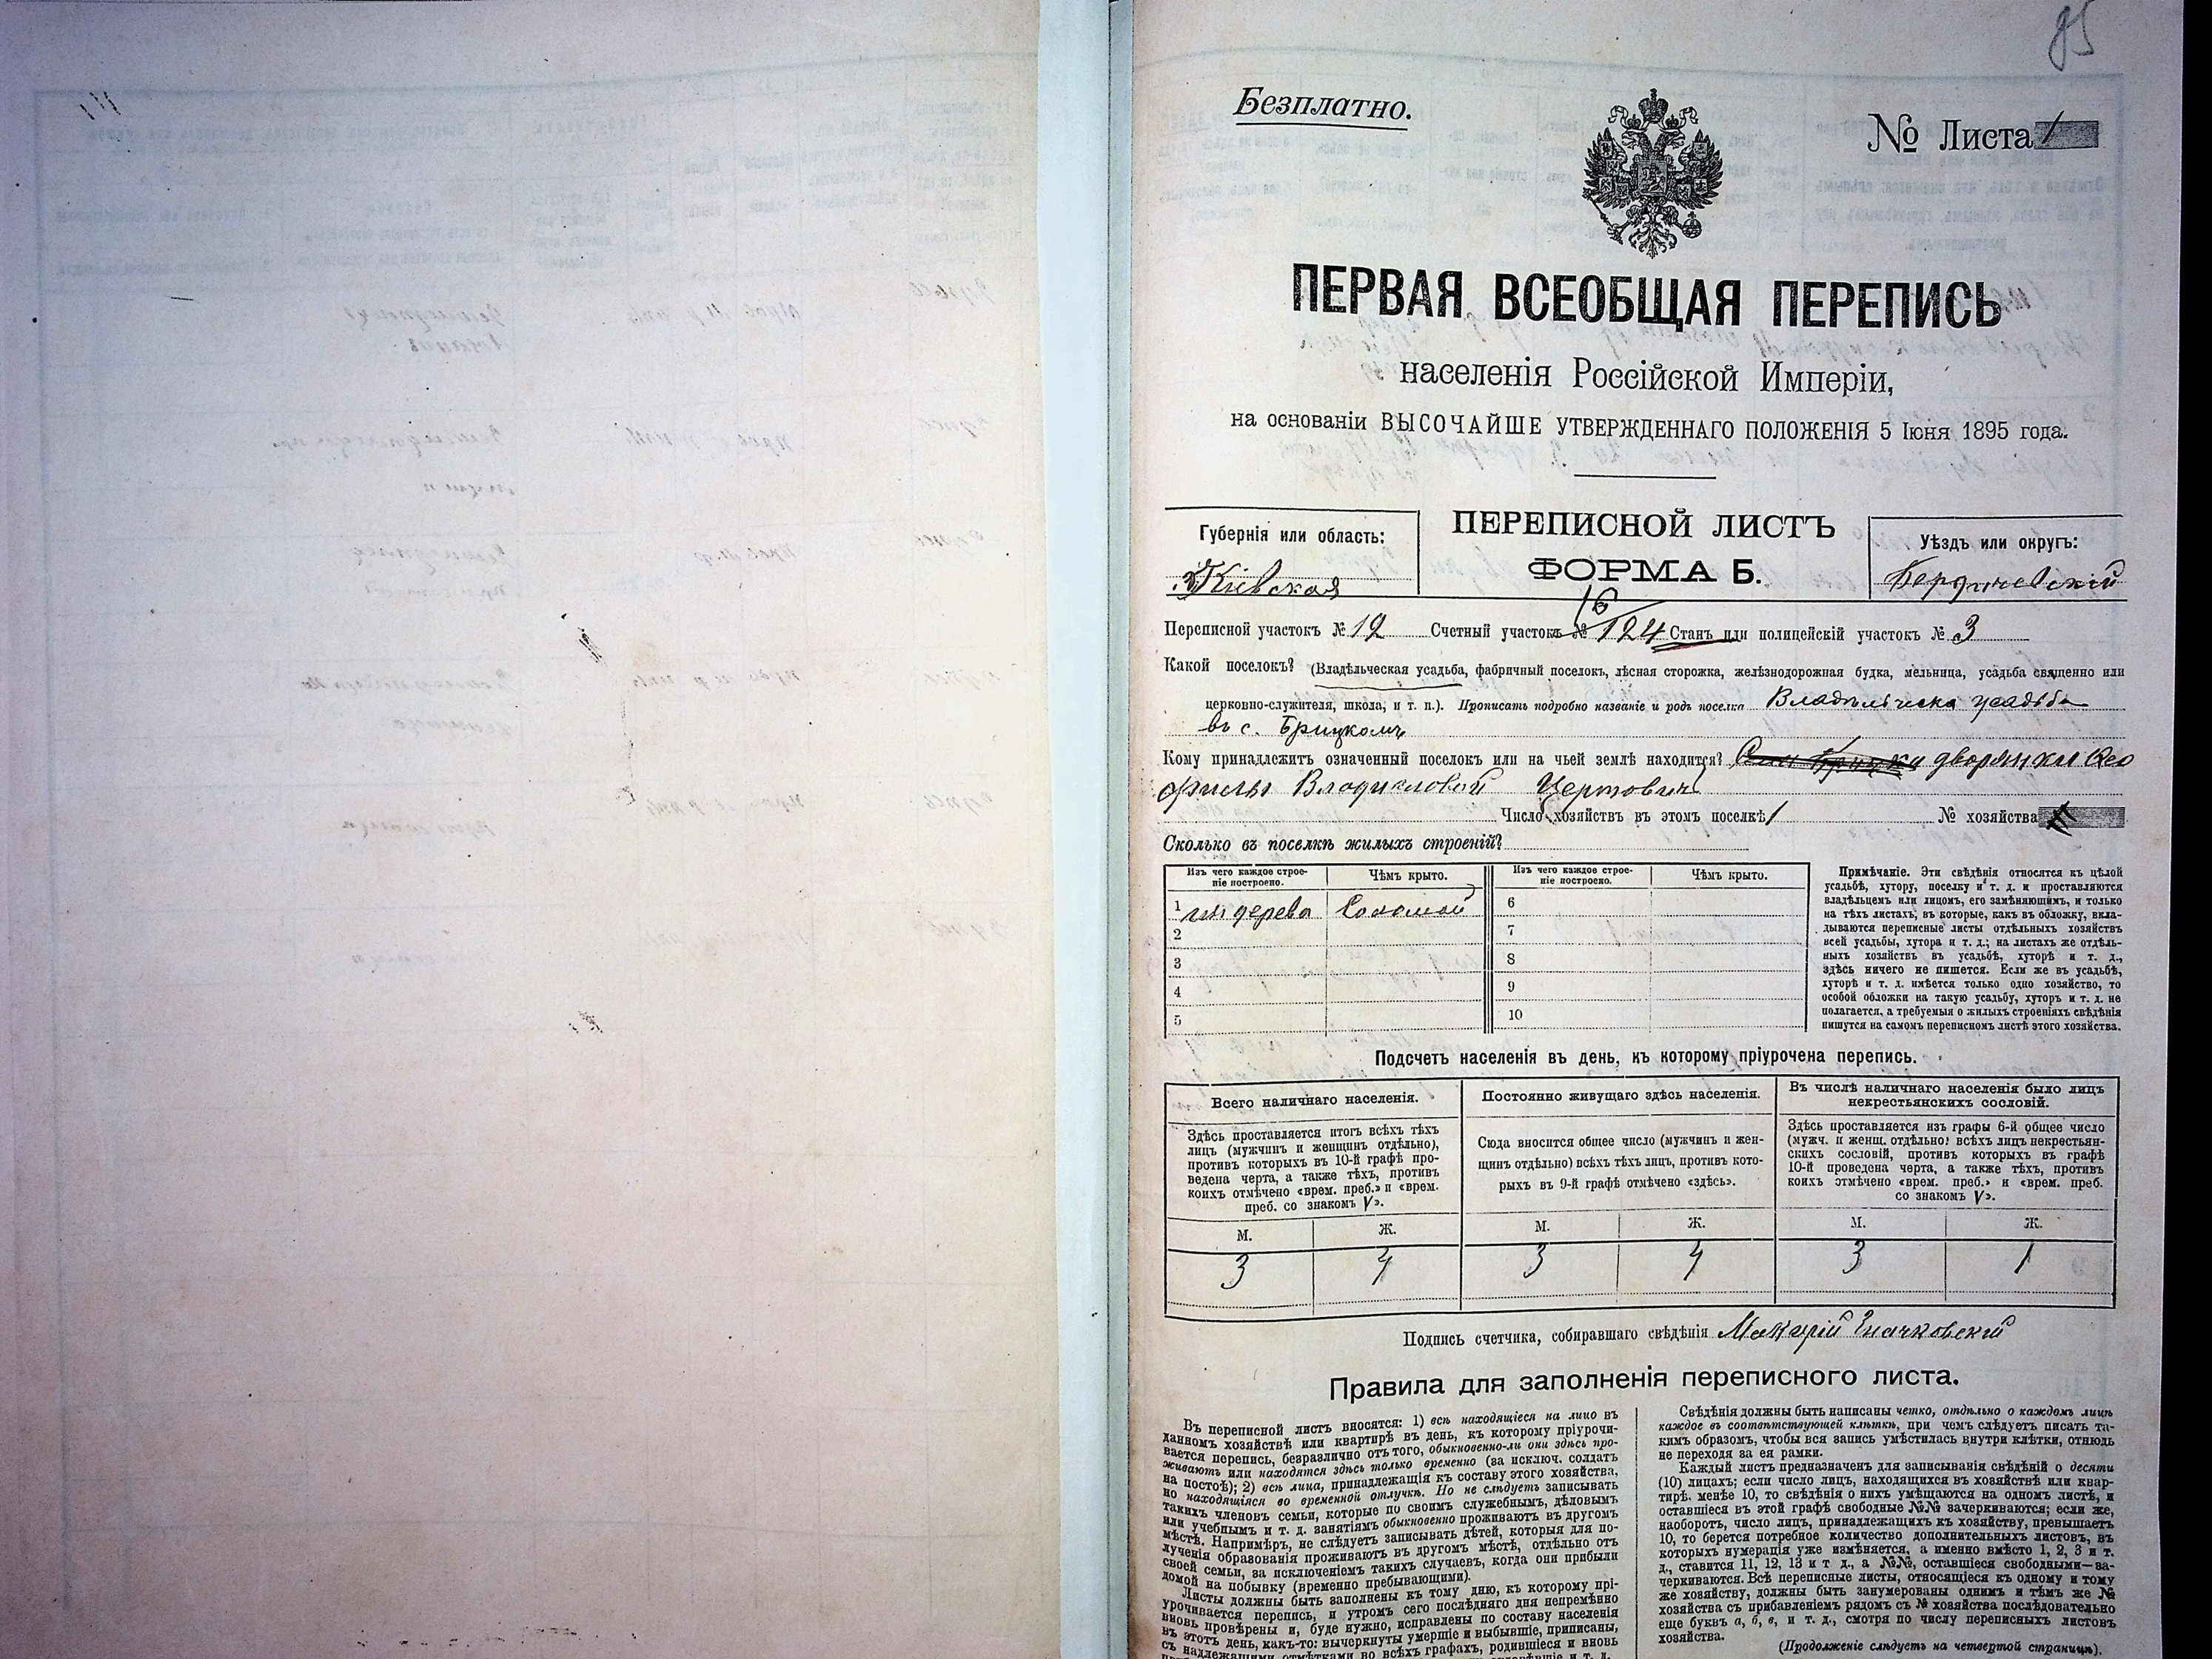 95
Безплатно.
№ Листа 1
ПЕРВАЯ ВСЕОБЩАЯ ПЕРЕПИСЬ
населенія Россійской Имперіи,
на основаніи ВЫСОЧАЙШЕ УТВЕРЖДЕННАГО ПОЛОЖЕНІЯ 5 Іюня 1895 года.
Губернія или область:
Кіевская
ПЕРЕПИСНОЙ ЛИСТЪ
ФОРМА Б.
Уѣздъ или округъ:
Бердичевскій
Переписной участокъ № 12 Счетный участокъ № 124 16 Станъ или полицейскій участокъ № 3
Какой поселокъ? (Владѣльческая усадьба, фабричный поселокъ, лѣсная сторожка, желѣзнодорожная будка, мельница, усадьба священно или
церковно-служителя, школа, и т. п.). Прописать подробно названіе и родъ поселка Владѣльческа усадьба
въ с. Брицкомъ
Кому принадлежитъ означенный поселокъ или на чьей землѣ находится? дворянки Фео
филы Владиславовой
Число хозяйствъ въ этомъ поселкѣ 1 № хозяйства
Сколько въ поселкѣ жилыхъ строеній?
Изъ чего каждое строе-
ніе построено.
Чѣмъ крыто.
Изъ чего каждое строе-
ніе построено.
Чѣмъ крыто.
1 изъ дерева Соломой 6
2 7
3 8
4 9
5 10
Примѣчаніе. Эти свѣдѣнія относятся къ цѣлой
усадьбѣ, хутору, поселку и т. д. и проставляются
владѣльцемъ или лицомъ, его замѣняющимъ, и только
на тѣхъ листахъ, въ которые, какъ въ обложку, вкла-
дываются переписные листы отдѣльныхъ хозяйствъ
всей усадьбы, хутора и т. д.; на листахъ же отдѣль-
ныхъ хозяйствъ въ усадьбѣ, хуторѣ и т. д.,
здѣсь ничего не пишется. Если же въ усадьбѣ,
хуторѣ и т. д. имѣется только одно хозяйство, то
особой обложки на такую усадьбу, хуторъ и т. д. не
полагается, а требуемыя о жилыхъ строеніяхъ свѣдѣнія
пишутся на самомъ переписномъ листѣ этого хозяйства.
Подсчетъ населенія въ день, къ которому пріурочена перепись.
Всего наличнаго населенія.
Здѣсь проставляется итогъ всѣхъ тѣхъ
лицъ (мужчинъ и женщинъ отдѣльно),
противъ которыхъ въ 10-й графѣ про-
ведена черта, а также тѣхъ, противъ
коихъ отмѣчено «врем. преб.» и «врем.
преб. со знакомъ V».
Постоянно живущаго здѣсь населенія.
Сюда вносится общее число (мужчинъ и жен-
щинъ отдѣльно) всѣхъ тѣхъ лицъ, противъ кото-
рыхъ въ 9-й графѣ отмѣчено «здѣсь».
Въ числѣ наличнаго населенія было лицъ
некрестьянскихъ сословій.
Здѣсь проставляется изъ графы 6-й общее число
(мужч. и женщ. отдѣльно) всѣхъ лицъ некрестьян-
скихъ сословій, противъ которыхъ въ графѣ
10-й проведена черта, а также тѣхъ, противъ
коихъ отмѣчено «врем. преб.» и «врем. преб.
со знакомъ V».
М. Ж. М. Ж. М. Ж.
3 4 3 4 3 1
Подпись счетчика, собиравшаго свѣдѣнія Макарій
Правила для заполненія переписного листа.
Въ переписной листъ вносятся: 1) всѣ находящіеся на лицо въ
данномъ хозяйствѣ или квартирѣ въ день, къ которому пріурочи-
вается перепись, безразлично отъ того, обыкновенно-ли они здѣсь про-
живаютъ или находятся здѣсь только временно (за исключ. солдатъ
на постоѣ); 2) всѣ лица, принадлежащія къ составу этого хозяйства,
но находящіяся во временной отлучкѣ. Но не слѣдуетъ записывать
такихъ членовъ семьи, которые по своимъ служебнымъ, дѣловымъ
или учебнымъ и т. д. занятіямъ обыкновенно проживаютъ въ другомъ
мѣстѣ. Напримѣръ, не слѣдуетъ записывать дѣтей, которыя для по-
лученія образованія проживаютъ въ другомъ мѣстѣ, отдѣльно отъ
своей семьи, за исключеніемъ такихъ случаевъ, когда они прибыли
домой на побывку (временно пребывающими).
Листы должны быть заполнены къ тому дню, къ которому прі-
урочивается перепись, и утромъ сего послѣдняго дня непремѣнно
вновь провѣрены и, буде нужно, исправлены по составу населенія
въ этотъ день, какъ-то: вычеркнуты умершіе и выбывшіе, приписаны,
съ надлежащими отмѣтками во всѣхъ графахъ, родившіеся и вновь
Свѣдѣнія должны быть написаны четко, отдѣльно о каждомъ лицѣ
каждое въ соотвѣтствующей клѣткѣ, при чемъ слѣдуетъ писать та-
кимъ образомъ, чтобы вся запись умѣстилась внутри клѣтки, отнюдь
не переходя за ея рамки.
Каждый листъ предназначенъ для записыванія свѣдѣній о десяти
(10) лицахъ; если число лицъ, находящихся въ хозяйствѣ или квар-
тирѣ, менѣе 10, то свѣдѣнія о нихъ умѣщаются на одномъ листѣ, и
оставшіеся въ этой графѣ свободные №№ зачеркиваются; если же,
наоборотъ, число лицъ, принадлежащихъ къ хозяйству, превышаетъ
10, то берется потребное количество дополнительныхъ листовъ, въ
которыхъ нумерація уже измѣняется, а именно вмѣсто 1, 2, 3 и т.
д., ставится 11, 12, 13 и т д., а №№, оставшіеся свободными—за-
черкиваются. Всѣ переписные листы, относящіеся къ одному и тому
же хозяйству, должны быть занумерованы однимъ и тѣмъ же №
хозяйства съ прибавленіемъ рядомъ съ № хозяйства послѣдовательно
еще буквъ а, б, в, и т. д., смотря по числу переписныхъ листовъ
хозяйства.
(Продолженіе слѣдуетъ на четвертой страницѣ).